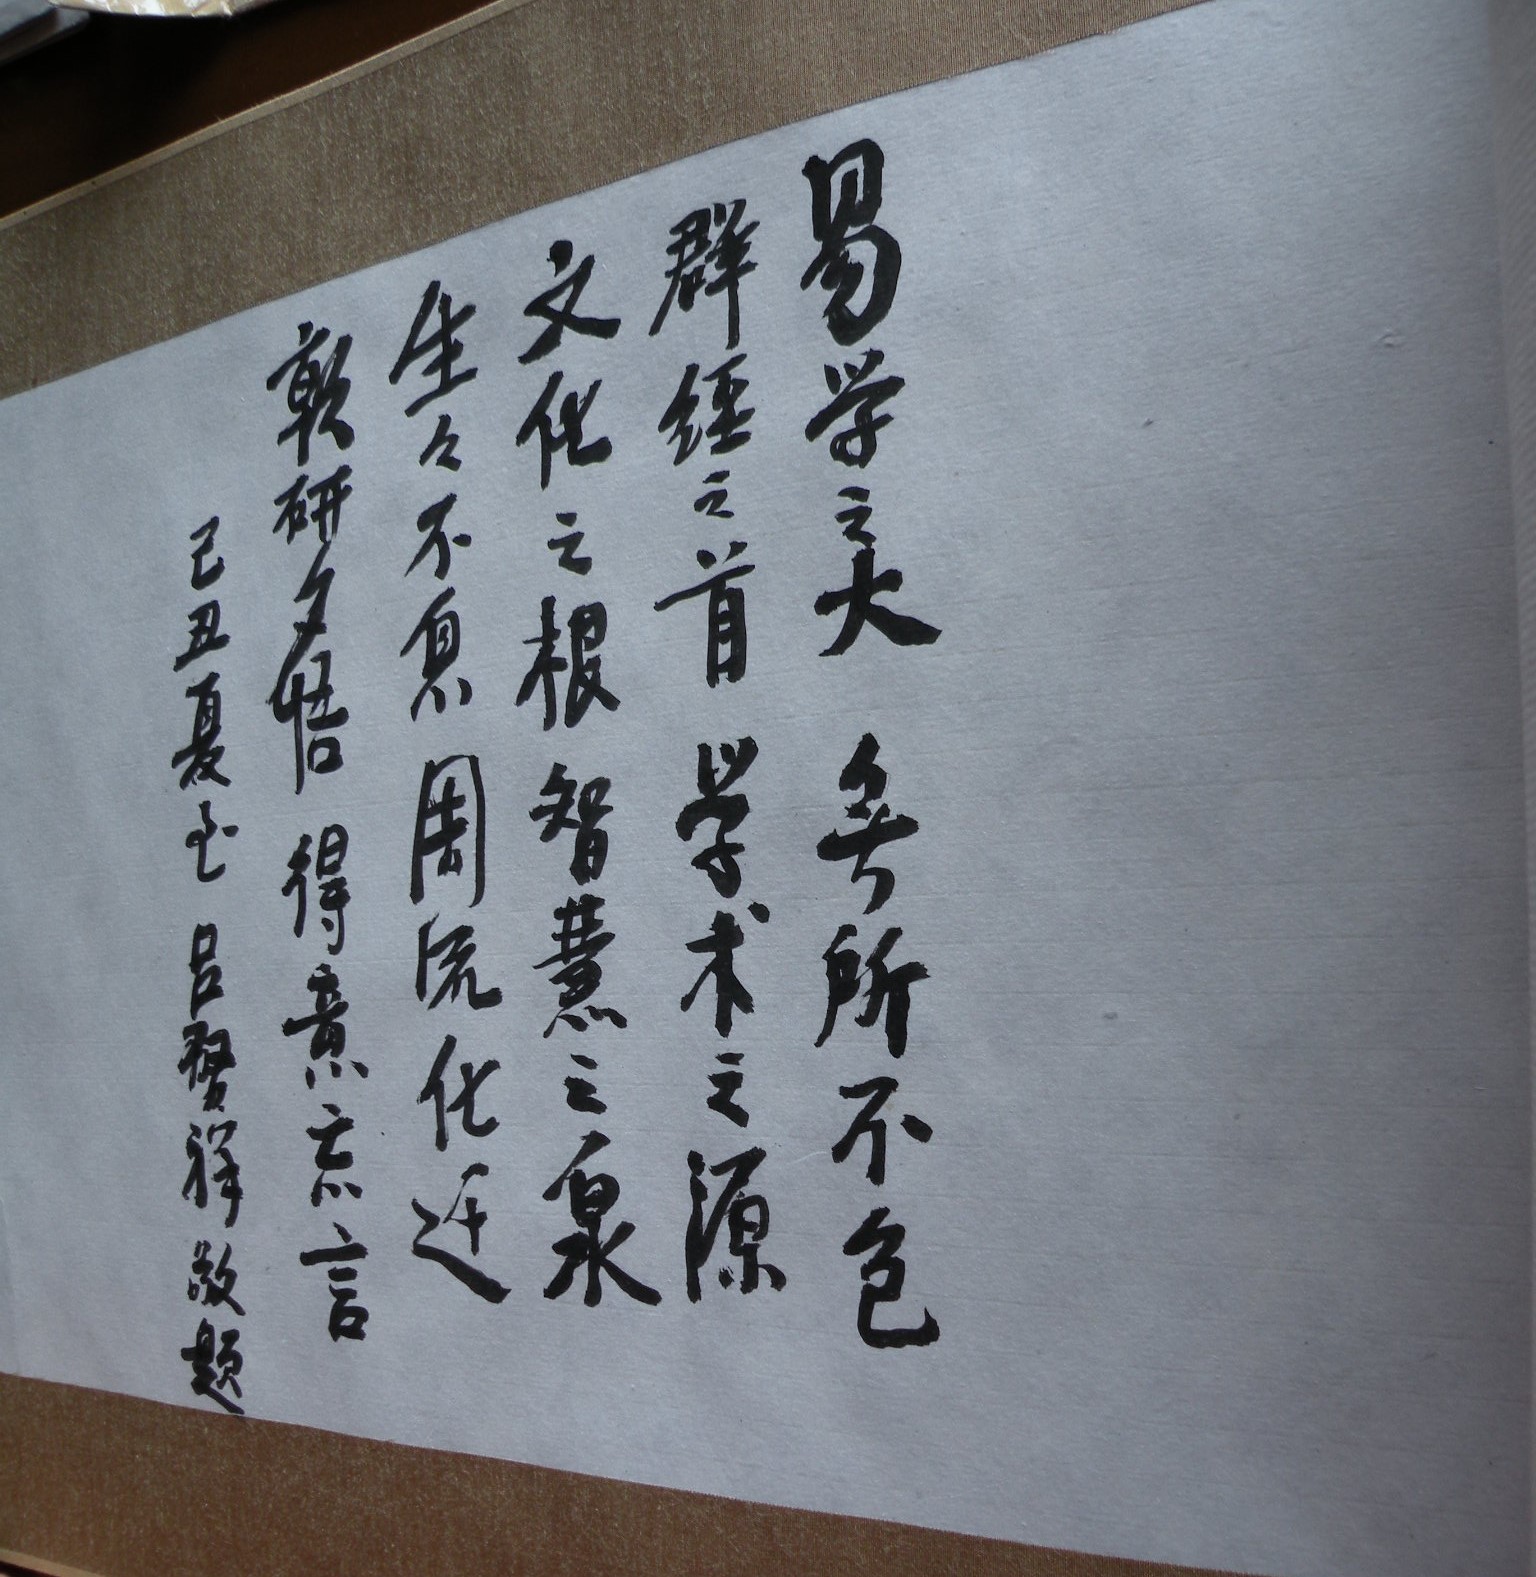 易学之大 無所不包
群經之首 学术之源
文化之根 智慧之泉
生々不息 周流化迁
朝研夕悟 得意忘言
己丑夏至 吕賢祥敬题